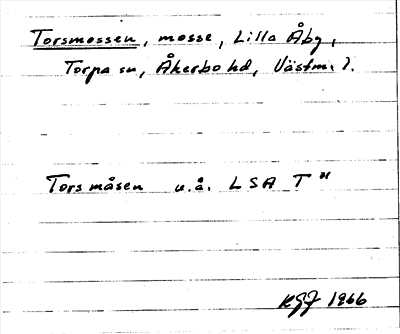 Torsmossen, mosse, Lilla Åby,
Torpa sn, Åkerbo hd, Västm. l.
Torsmåsen u.å. LSA T"
KGJ 1966